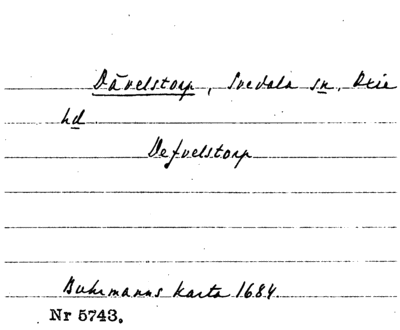 Dāvelstorp, Svedala sn, Oxie
hd
Defvelstorp
Buhrmanns karta 1684.
Nr 5743.